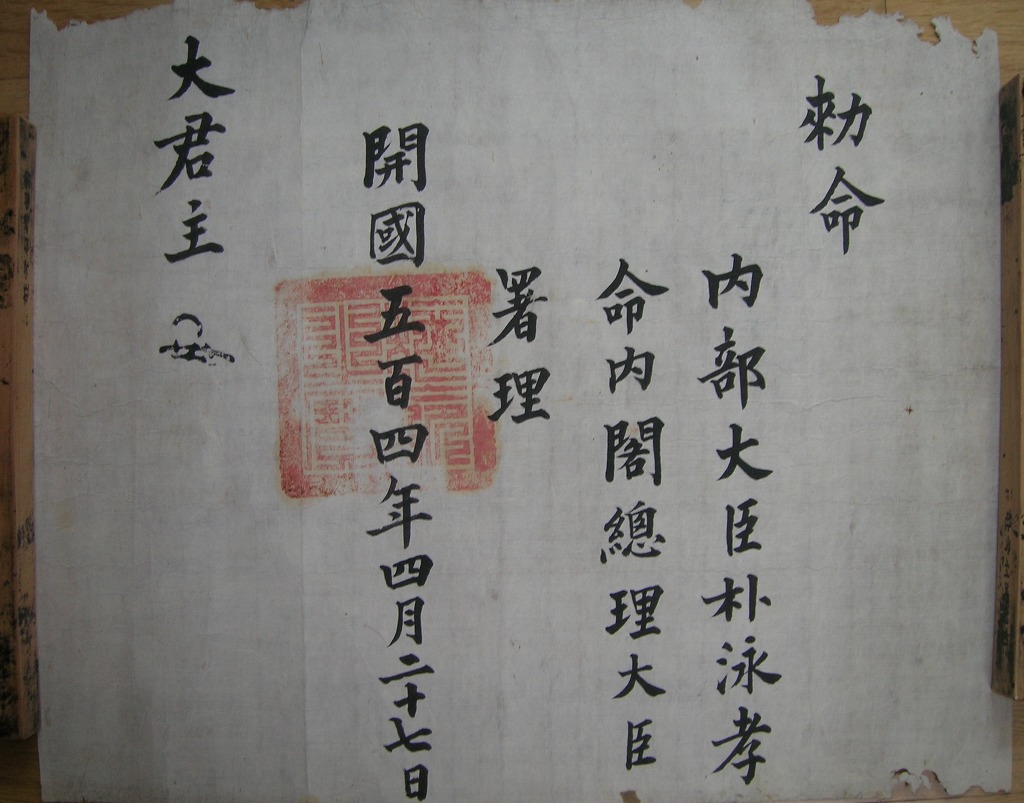 勅命
内部大臣朴泳孝
命内閣總理大臣
署理
開國五百四年四月二十七日
大君主